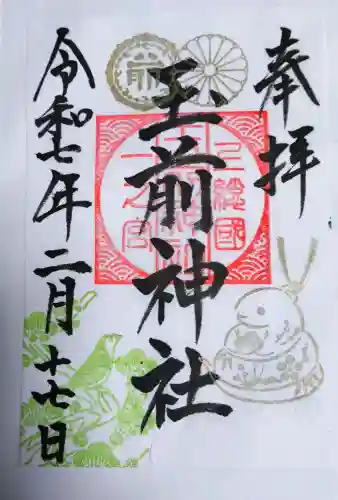 奉拝
玉前神社
上総國
一之宮
令和七年二月十七日